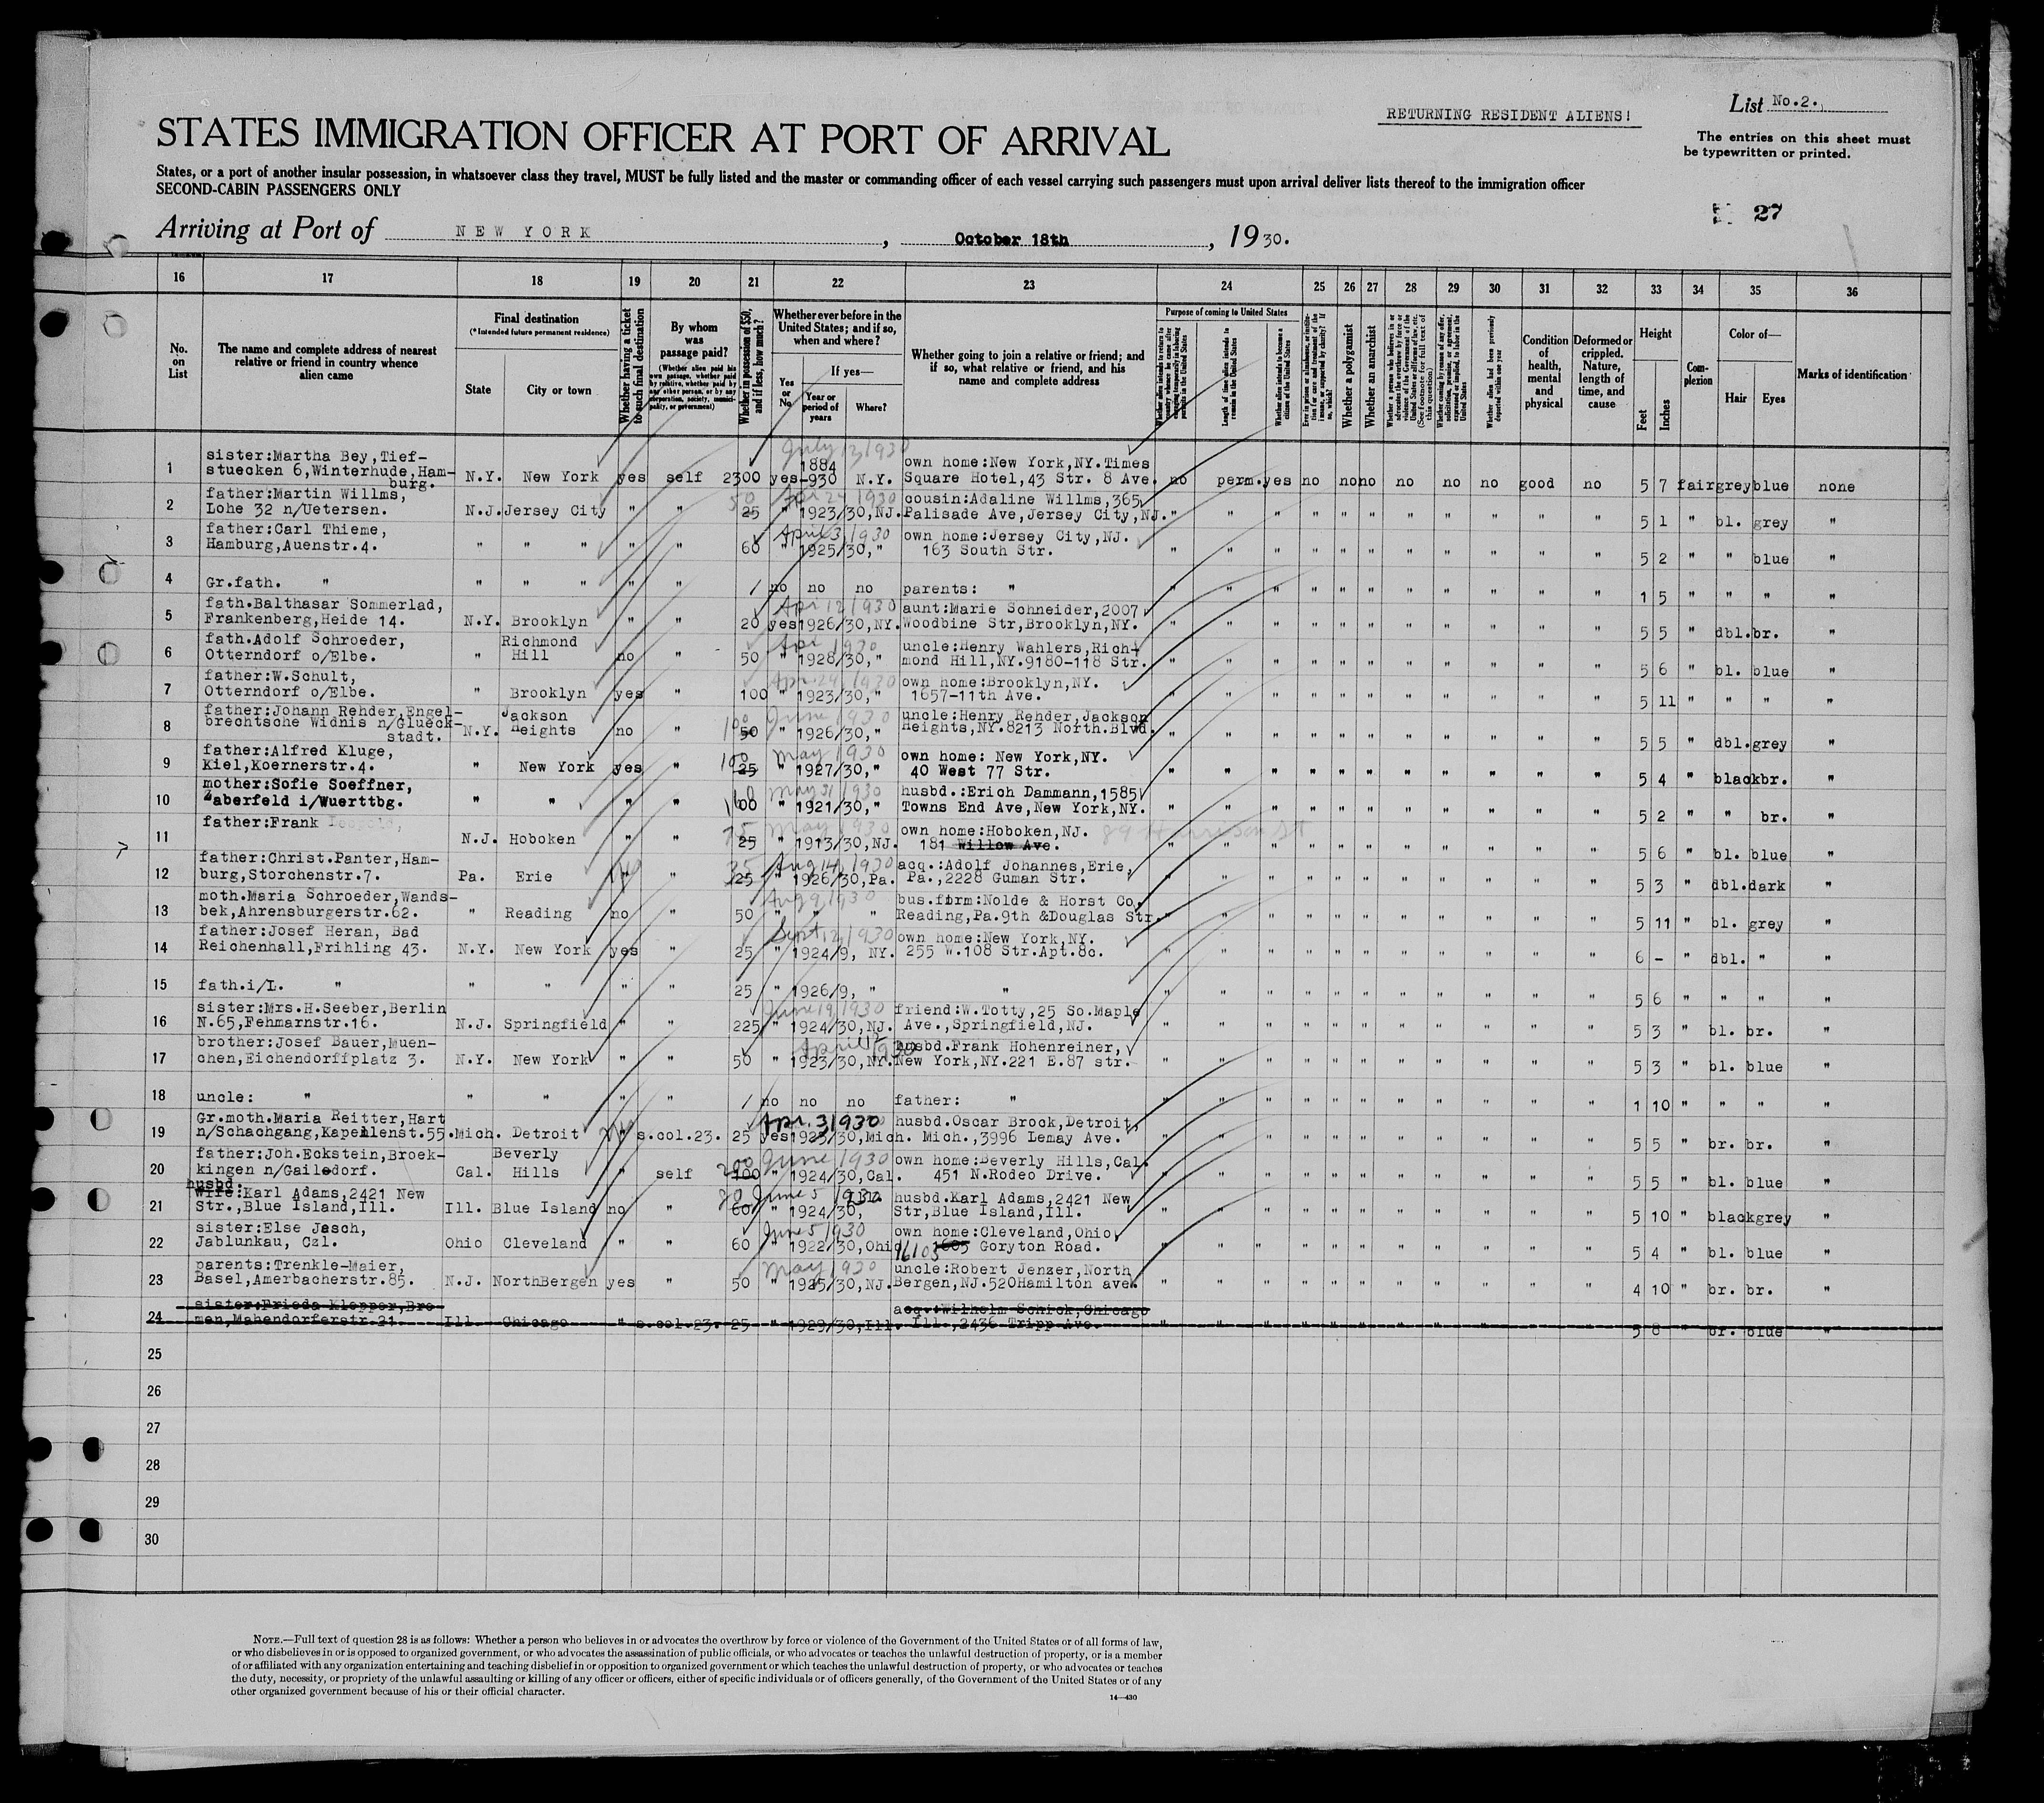 RETURNING RESIDENT ALIENS!
List No.2.
STATES IMMIGRATION OFFICER AT PORT OF ARRIVAL
The entries on this sheet must
be typewritten or printed.
States, or a port of another insular possession, in whatsoever class they travel, MUST be fully listed and the master or commanding officer of each vessel carrying such passengers must upon arrival deliver lists thereof to the immigration officer
SECOND-CABIN PASSENGERS ONLY
27
Arriving at Port of NEW YORK, October 18th, 1930.
16 17 18 19 20 21 22 23 24 25 26 27 28 29 30 31 32 33 34 35 36
No. on List
The name and complete address of nearest relative or friend in country whence alien came
Final destination
(*Intended future permanent residence)
State
City or town
Whether having a ticket to such final destination
By whom was passage paid?
(Whether alien paid his own passage, whether paid by relative, whether paid by any other person, or by any corporation, society, municipality, or government)
Whether in possession of $50, and if less, how much?
Whether ever before in the United States; and if so, when and where?
Yes or No
If yes—
Year or period of years
Where?
Whether going to join a relative or friend; and if so, what relative or friend, and his name and complete address
Purpose of coming to United States
Length of time alien intends to remain in the United States
Whether alien intends to become a citizen of the United States
Whether a polygamist
Whether an anarchist
Condition of health, mental and physical
Deformed or crippled. Nature, length of time, and cause
Height
Feet
Inches
Complexion
Color of—
Hair
Eyes
Marks of identification
July 12, 1930
1 sister:Martha Bey,Tiefstuecken 6,Winterhude,Hamburg. N.Y. New York yes self 2300 yes 1884-930 N.Y. own home:New York,NY.Times Square Hotel,43 Str. 8 Ave. no perm. yes no no no no no no good no 5 7 fair grey blue none
2 father:Martin Willms, Lohe 32 n/Uetersen. N.J. Jersey City " " 50 25 " Apr 24 1930 1923/30,NJ. cousin:Adaline Willms,365 Palisade Ave,Jersey City,NJ. " " " " " " " " " " " 5 1 " bl. grey "
3 father:Carl Thieme, Hamburg,Auenstr.4. " " " " " 60 " April 3, 1930 1925/30," own home:Jersey City,NJ. 163 South Str. " " " " " " " " " " " 5 2 " " blue "
4 Gr.fath. " " " " " " / no no no parents: " " " " " " " " " " " " 1 5 " " " "
5 fath.Balthasar Sommerlad, Frankenberg,Heide 14. N.Y. Brooklyn " " 20 yes Apr 12 1930 1926/30,NY. aunt:Marie Schneider,2007 Woodbine Str,Brooklyn,NY. " " " " " " " " " " " 5 5 " dbl. br. "
6 fath.Adolf Schroeder, Otterndorf o/Elbe. " Richmond Hill no " 50 " Apr 1930 1928/30," uncle:Henry Wahlers,Richmond Hill,NY.9180-118 Str. " " " " " " " " " " " 5 6 " bl. blue "
7 father:W.Schult, Otterndorf o/Elbe. " Brooklyn yes " 100 " Apr. 24, 1930 1923/30," own home:Brooklyn,NY. 1657-11th Ave. " " " " " " " " " " " 5 11 " " " "
8 father:Johann Rehder,Engelbrechtsche Widnis n/Glueckstadt. N.Y. Jackson Heights no " 100 50 " June 1930 1926/30," uncle:Henry Rehder,Jackson Heights,NY.8213 North.Blvd. " " " " " " " " " " " 5 5 " dbl. grey "
9 father:Alfred Kluge, Kiel,Koernerstr.4. " New York yes " 100 25 " May 1930 1927/30," own home: New York,NY. 40 West 77 Str. " " " " " " " " " " " 5 4 " black br. "
10 mother:Sofie Soeffner, Zaberfeld i/Wuerttbg. " " " " 100 " May 31 1930 1921/30," husbd.:Erich Dammann,1585 Towns End Ave,New York,NY. " " " " " " " " " " " 5 2 " " br. "
11 father:Frank N.J. Hoboken " " 75 25 " May 1930 1913/30,NJ. own home:Hoboken,NJ. 89 Harrison St 181 Willow Ave. " " " " " " " " " " " 5 6 " bl. blue "
12 father:Christ.Panter,Hamburg,Storchenstr.7. Pa. Erie no " 35 25 " Aug 14, 1930 1926/30,Pa. acq.:Adolf Johannes,Erie, Pa.,2228 Guman Str. " " " " " " " " " " " 5 3 " dbl. dark "
13 moth.Maria Schroeder,Wandsbek,Ahrensburgerstr.62. " Reading no " 50 " Aug 9, 1930 " " bus.firm:Nolde & Horst Co, Reading,Pa.9th &Douglas Str. " " " " " " " " " " " 5 11 " bl. grey "
14 father:Josef Heran, Bad Reichenhall,Frihling 43. N.Y. New York yes " 25 " Sept 12, 1930 1924/9, NY. own home:New York,NY. 255 W.108 Str.Apt.8c. " " " " " " " " " " " 6 - " dbl. " "
15 fath.i/L. " " " " " 25 " 1926/9, " " " " " " " " " " " " " 5 6 " " " "
16 sister:Mrs.H.Seeber,Berlin N.65,Fehmarnstr.16. N.J. Springfield " " 225 " June 19, 1930 1924/30,NJ. friend:W.Totty,25 So.Maple Ave.,Springfield,NJ. " " " " " " " " " " " 5 3 " bl. br. "
17 brother:Josef Bauer,Muenchen,Eichendorffplatz 3. N.Y. New York " " 50 " April 12 1930 1923/30,NY. husbd.Frank Hohenreiner, New York,NY.221 E.87 str. " " " " " " " " " " " 5 3 " bl. blue "
18 uncle: " " " " " / no no no father: " " " " " " " " " " " " 1 10 " " " "
19 Gr.moth.Maria Reitter,Hart n/Schachgang,Kapellenst.55. Mich. Detroit " s.col.23. 25 yes Apr. 3, 1930 1923/30,Mich. husbd.Oscar Brock,Detroit, Mich.,3996 Lemay Ave. " " " " " " " " " " " 5 5 " br. br. "
20 father:Joh.Eckstein,Broekkingen n/Gaildorf. Cal. Beverly Hills " self 200 100 " June 1930 1924/30,Cal. own home:Beverly Hills,Cal. 451 N.Rodeo Drive. " " " " " " " " " " " 5 5 " bl. blue "
21 husbd. wife:Karl Adams,2421 New Str.,Blue Island,Ill. Ill. Blue Island no " 80 60 " June 5 1930 Ill. 1924/30, husbd.Karl Adams,2421 New Str,Blue Island,Ill. " " " " " " " " " " " 5 10 " black grey "
22 sister:Else Jasch, Jablunkau, Czl. Ohio Cleveland " " 60 " June 5 1930 1922/30,Ohio own home:Cleveland,Ohio, 16103 1605 Goryton Road. " " " " " " " " " " " 5 4 " bl. blue "
23 parents:Trenkle-Maier, Basel,Amerbacherstr.85. N.J. NorthBergen yes " 50 " May 1930 1925/30,NJ. uncle:Robert Jenzer,North Bergen,NJ.520Hamilton ave. " " " " " " " " " " " 4 10 " br. br. "
24 sister:Frieda Klepper,Bremen,Mahendorferstr.21. Ill. Chicago " s.col.23. 25 " 1929/30,Ill. acq.:Wilhelm Schick,Chicago Ill.,2436 Tripp Ave. " " " " " " " " " " " 5 8 " br. blue "
25
26
27
28
29
30
NOTE.—Full text of question 28 is as follows: Whether a person who believes in or advocates the overthrow by force or violence of the Government of the United States or of all forms of law,
or who disbelieves in or is opposed to organized government, or who advocates the assassination of public officials, or who advocates or teaches the unlawful destruction of property, or is a member
of or affiliated with any organization entertaining and teaching disbelief in or opposition to organized government or which teaches the unlawful destruction of property, or who advocates or teaches
the duty, necessity, or propriety of the unlawful assaulting or killing of any officer or officers, either of specific individuals or of officers generally, of the Government of the United States or of any
other organized government because of his or their official character.
14—430